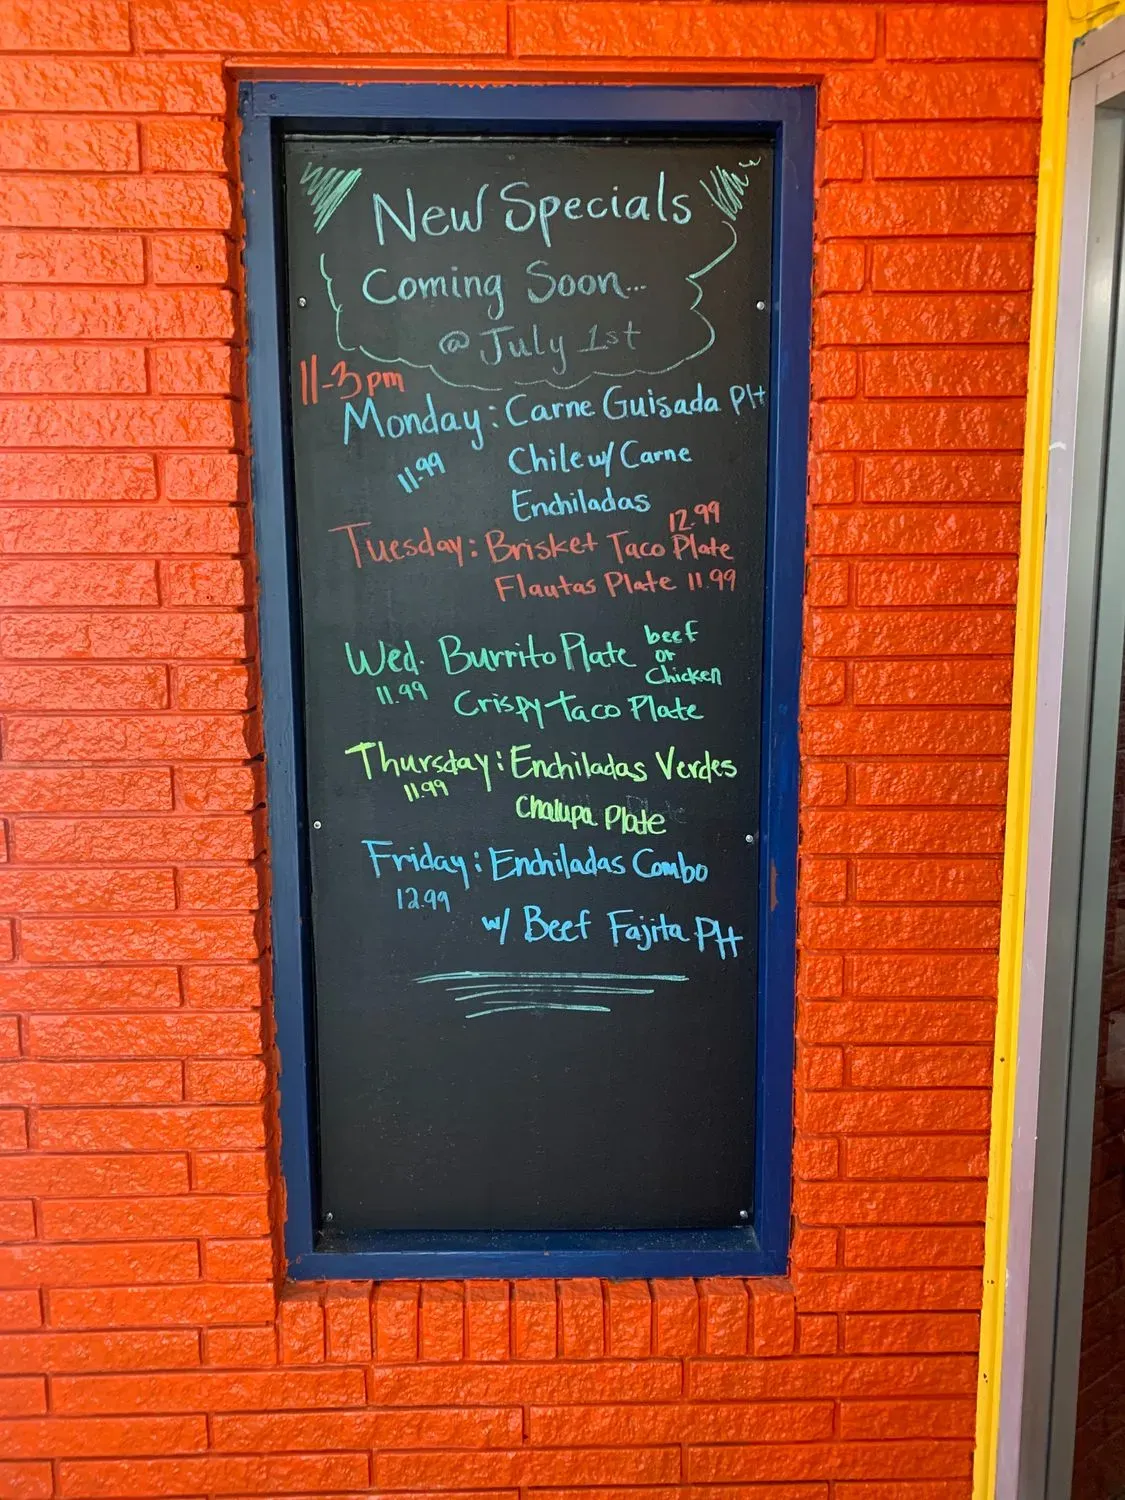 New Specials
Coming Soon...
@ July 1st
11-3pm
Monday: Carne Guisada Plt
11.99
Chile w/ Carne
Enchiladas
12.99
Tuesday: Brisket Taco Plate
Flautas Plate 11.99
Wed. Burrito Plate beef or Chicken
11.99
Crispy Taco Plate
Thursday: Enchiladas Verdes
11.99
Chalupa Plate
Friday: Enchiladas Combo
12.99
w/ Beef Fajita Plt